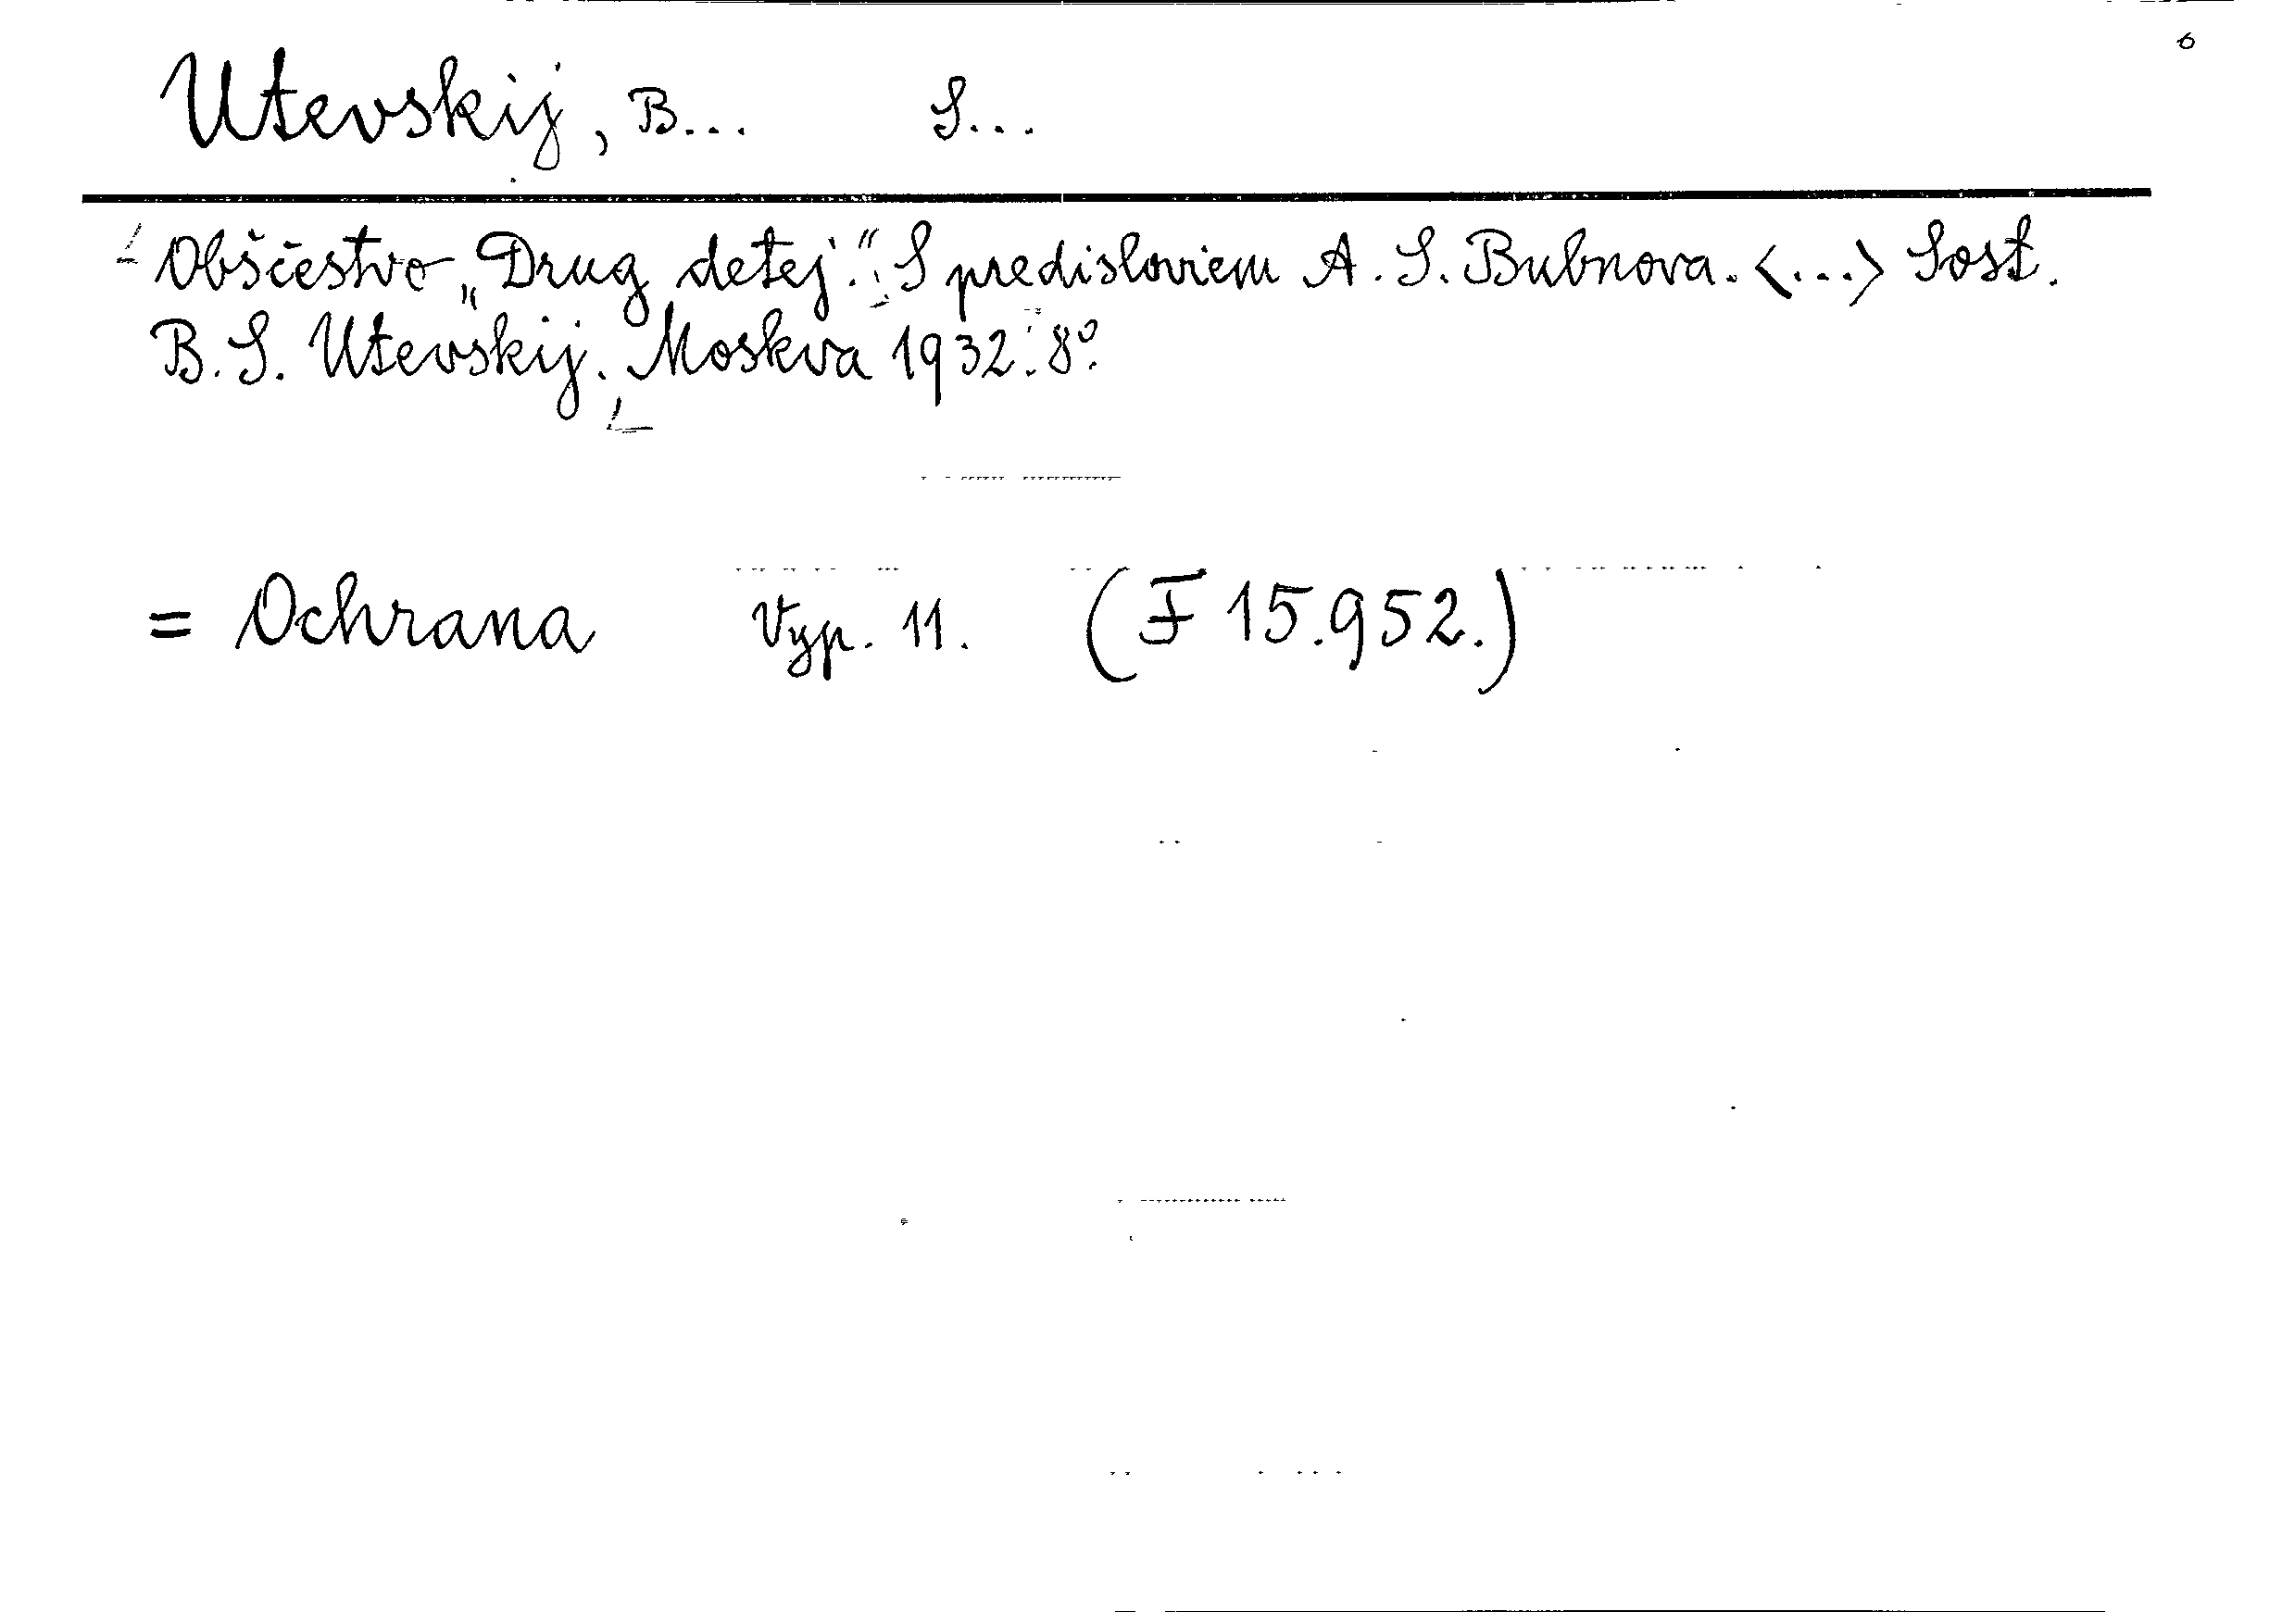 6
Utevskij, B... S...
Obščestvo „Drug detej.“ S predisloviem A. S. Bubnova. <...> Sost.
B. S. Utevskij. Moskva 1932. 8º.
= Ochrana Vyp. 11. (F 15.952.)